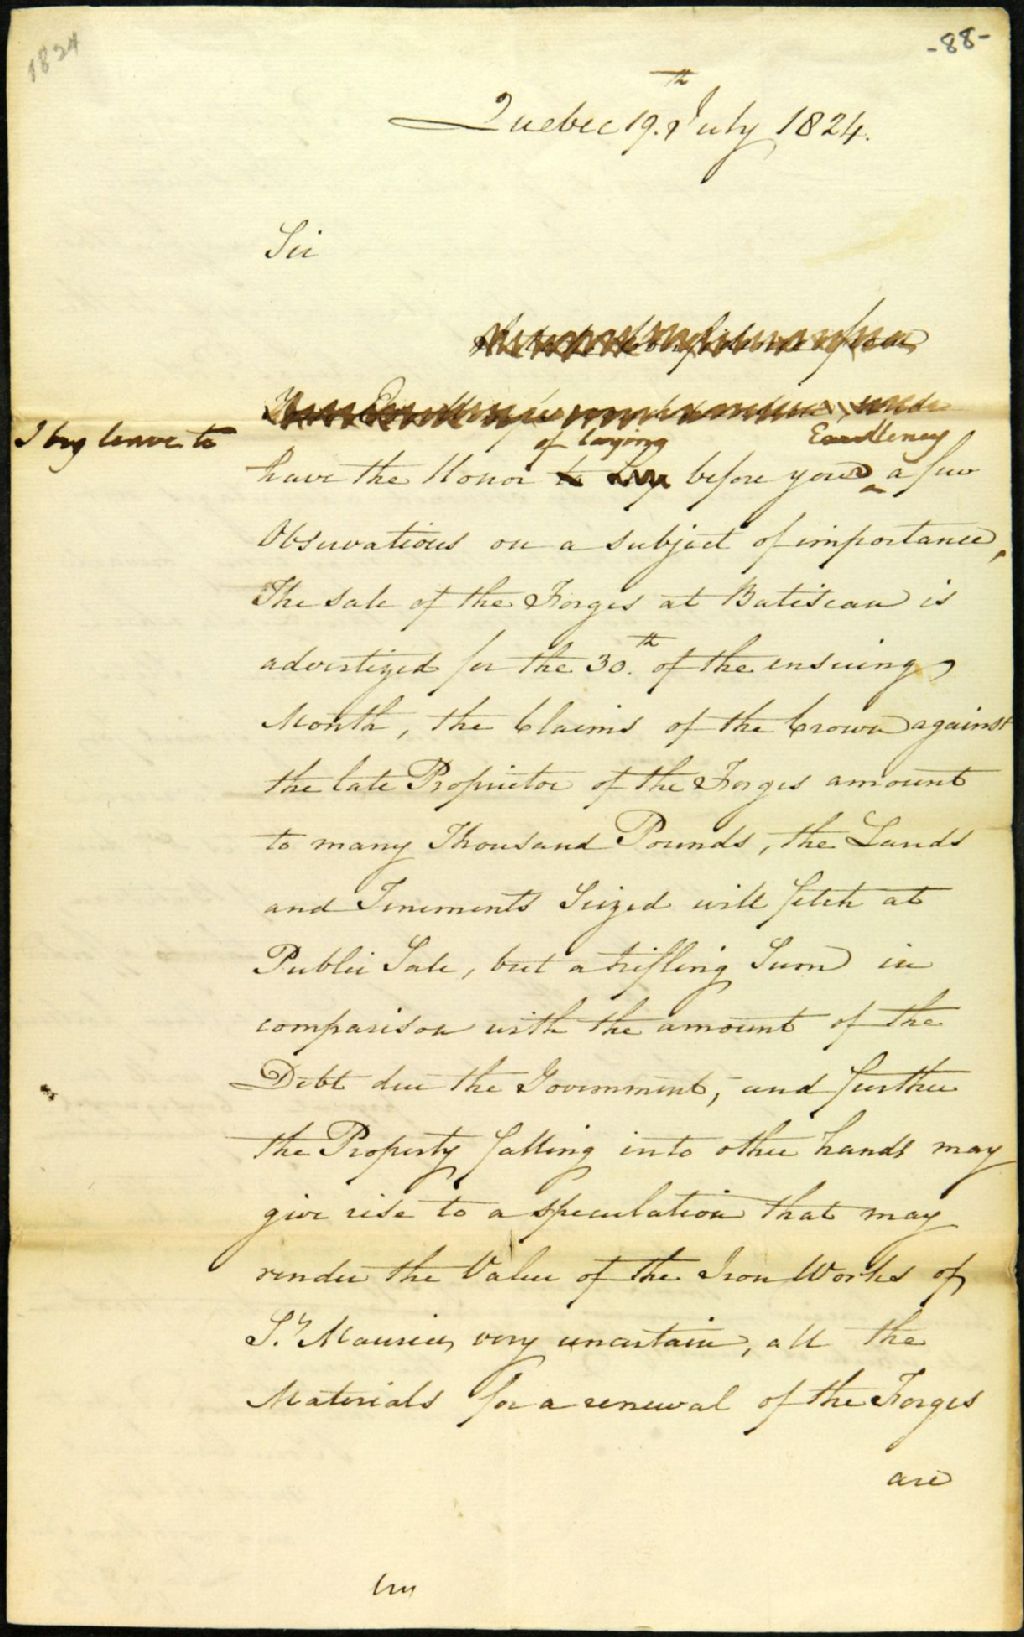 1824
-88-
Quebec 19.th July 1824.
Sir
I beg leave to
of laying Excellency
have the Honor to lay before your a few
Observations on a subject of importance,
The Sale of the Forges at Batiscan is
advertized for the 30.th of the ensuing
Month, the Claims of the Crown against
the late Proprietor of the Forges amount
to many Thousand Pounds, the Lands
and Tenements Seized will fetch at
Public Sale, but a trifling Sum in
comparison with the amount of the
Debt due the Government, and further
the Property falling into other hands may
give rise to a speculation that may
render the Value of the Iron Works of
St. Maurice very uncertain, all the
Materials for a renewal of the Forges
are